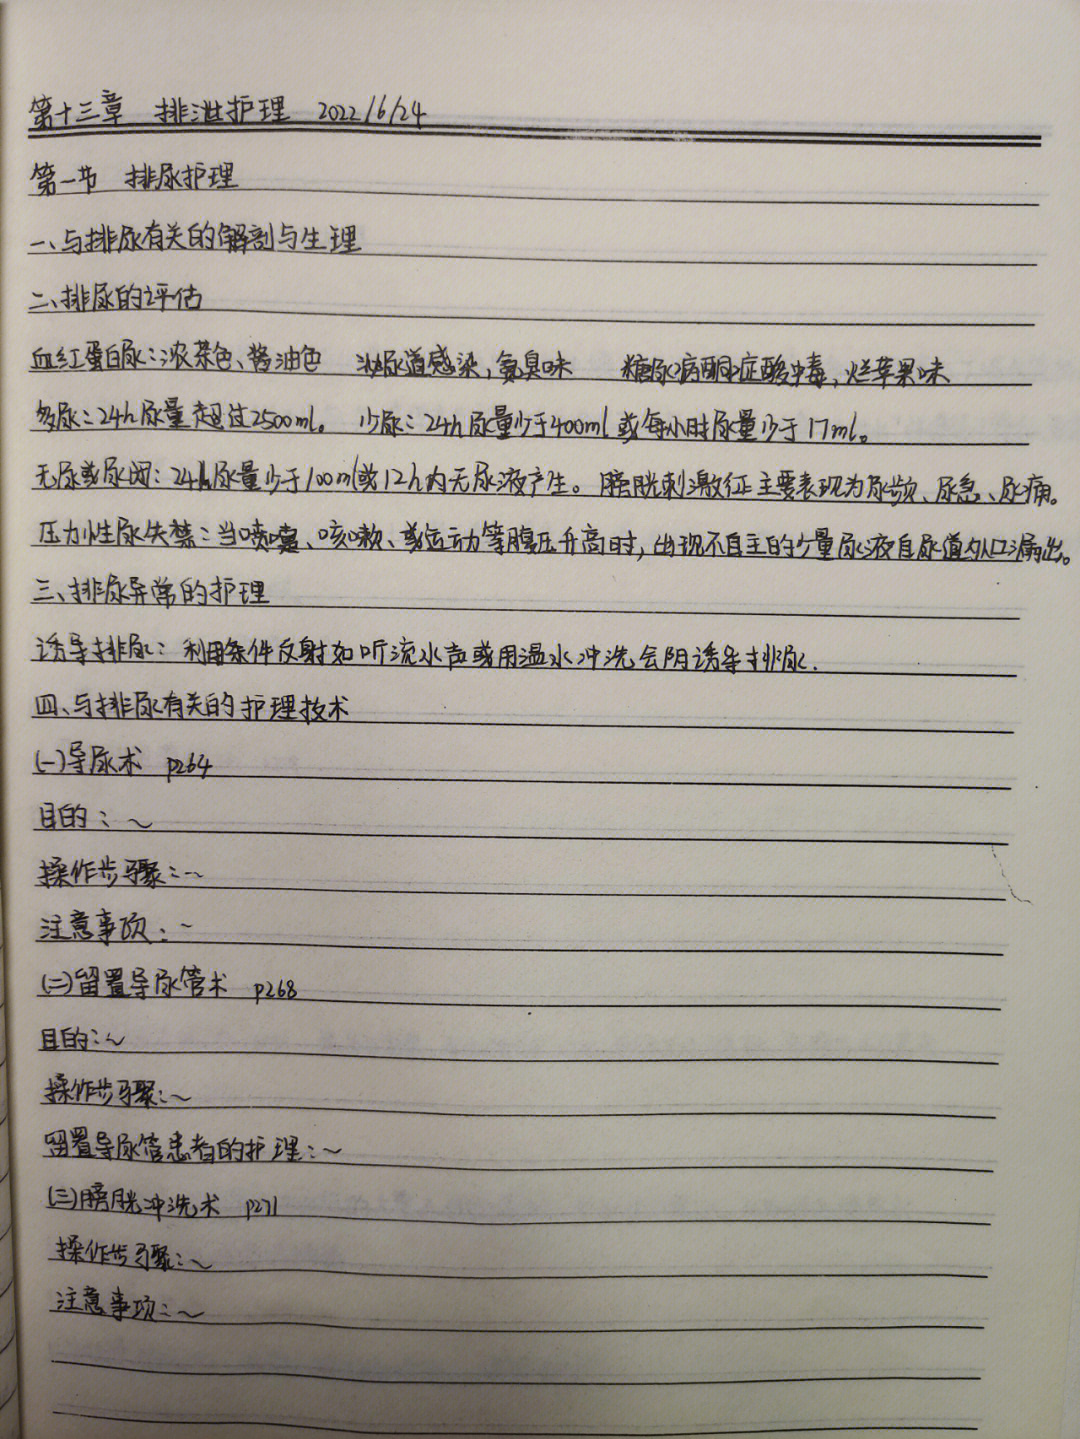 第十三章 排泄护理 2022/6/24
第一节 排尿护理
一、与排尿有关的解剖与生理
二、排尿的评估
血红蛋白尿：浓茶色、酱油色 泌尿道感染，氨臭味 糖尿病酮症酸中毒，烂苹果味
多尿：24h尿量超过2500ml。 少尿：24h尿量少于400ml或每小时尿量少于17ml。
无尿或尿闭：24h尿量少于100ml或12h内无尿液产生。膀胱刺激征主要表现为尿频、尿急、尿痛。
压力性尿失禁：当喷嚏、咳嗽、或运动等腹压升高时，出现不自主的少量尿液自尿道外口漏出。
三、排尿异常的护理
诱导排尿：利用条件反射如听流水声或用温水冲洗会阴诱导排尿.
四、与排尿有关的护理技术
(一)导尿术 p264
目的：～
操作步骤：～
注意事项：～
(二)留置导尿管术 p268
目的：～
操作步骤：～
留置导尿管患者的护理：～
(三)膀胱冲洗术 p271
操作步骤：～
注意事项：～